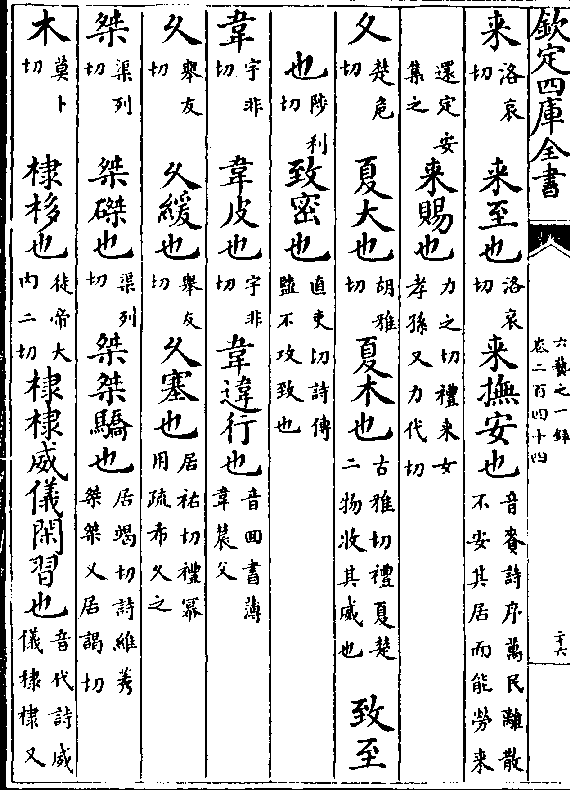 欽定四庫全書
六藝之一録
卷二百四十四
二十六
来洛哀切 来至也洛哀切 来撫安也音賚詩序萬民離散不安其居而能勞来
還定安集之 来賜也力之切禮来女孝孫又力代切
夊楚危切 夏大也胡雅切 夏木也古雅切禮夏楚二物收其威也 致至
也陟利切 致密也直吏切詩傳盬不攻致也
韋宇非切 韋皮也宇非切 韋違行也音回書薄韋農父
久舉友切 久緩也舉友切 久塞也居祐切禮冪用疏布久之
桀渠列切 桀磔也渠列切 桀桀驕也居竭切詩維莠桀桀又居謁切
木莫卜切 棣栘也徒帝大内二切 棣棣威儀閑習也音代詩威儀棣棣又